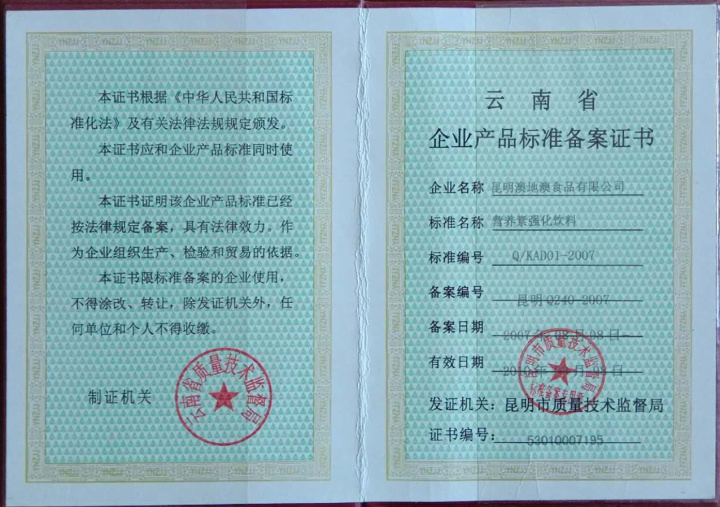 本证书根据《中华人民共和国标
准化法》及有关法律法规规定颁发。
本证书应和企业产品标准同时使
用。
本证书证明该企业产品标准已经
按法律规定备案，具有法律效力。作
为企业组织生产、检验和贸易的依据。
本证书限标准备案的企业使用，
不得涂改、转让，除发证机关外，任
何单位和个人不得收缴。
制证机关
云南省质量技术监督局
云南省
企业产品标准备案证书
企业名称 昆明澳地澳食品有限公司
标准名称 营养素强化饮料
标准编号 Q/KAD01-2007
备案编号 昆明 Q240-2007
备案日期 2007 年 08 月 08 日
有效日期
昆明市质量技术监督局
标准备案专用章
发证机关：昆明市质量技术监督局
证书编号：53010007195